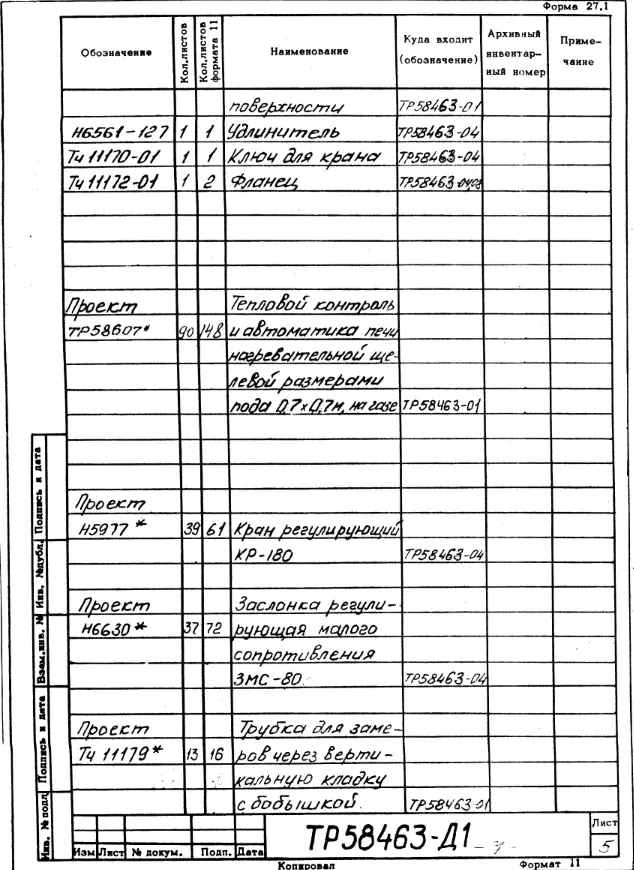 Форма 27.1
Обозначение Кол.листов Кол.листов формата 11 Наименование Куда входит (обозначение) Архивный инвентарный номер Примечание
поверхности ТР58463-01
Н6561-127 1 1 Удлинитель ТР58463-04
Тч 11170-01 1 1 Ключ для крана ТР58463-04
Тч 11172-01 1 2 Фланец
Проект Тепловой контроль
ТР58607* 90 148 и автоматика печи
нагревательной ще-
левой размерами
пода 0,7х0,7м, на газе ТР58463-01
Проект
Н5977* 39 61 Кран регулирующий
КР-180 ТР58463-04
Проект Заслонка регули-
Н6630* 37 72 рующая малого
сопротивления
ЗМС-80. ТР58463-04
Проект Трубка для заме-
Тч 11179* 13 16 ров через верти-
кальную кладку
с бобышкой. ТР58463-01
Инв. № подл. Подпись и дата Взам.инв. № Инв. № дубл. Подпись и дата
Изм Лист № докум. Подп. Дата
ТР58463-Д1
Лист
5
Копировал Формат 11